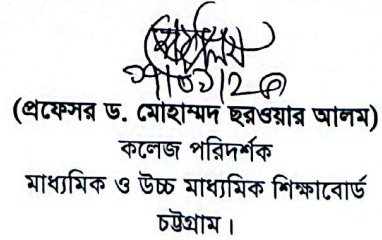 (প্রফেসর ড. মোহাম্মদ ছরওয়ার আলম)
কলেজ পরিদর্শক
মাধ্যমিক ও উচ্চ মাধ্যমিক শিক্ষাবোর্ড
চট্টগ্রাম।